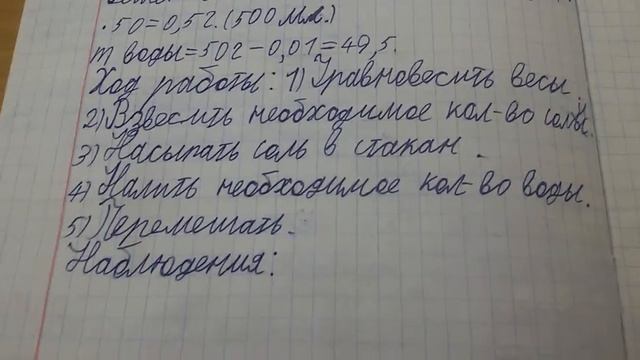 · 50 = 0,5г. (500 мл.)
m воды = 50г - 0,01 = 49,5.
Ход работы: 1) Уравновесить весы.
2) Взвесить необходимое кол-во соли.
3) Насыпать соль в стакан.
4) Налить необходимое кол-во воды.
5) Перемешать.
Наблюдения: